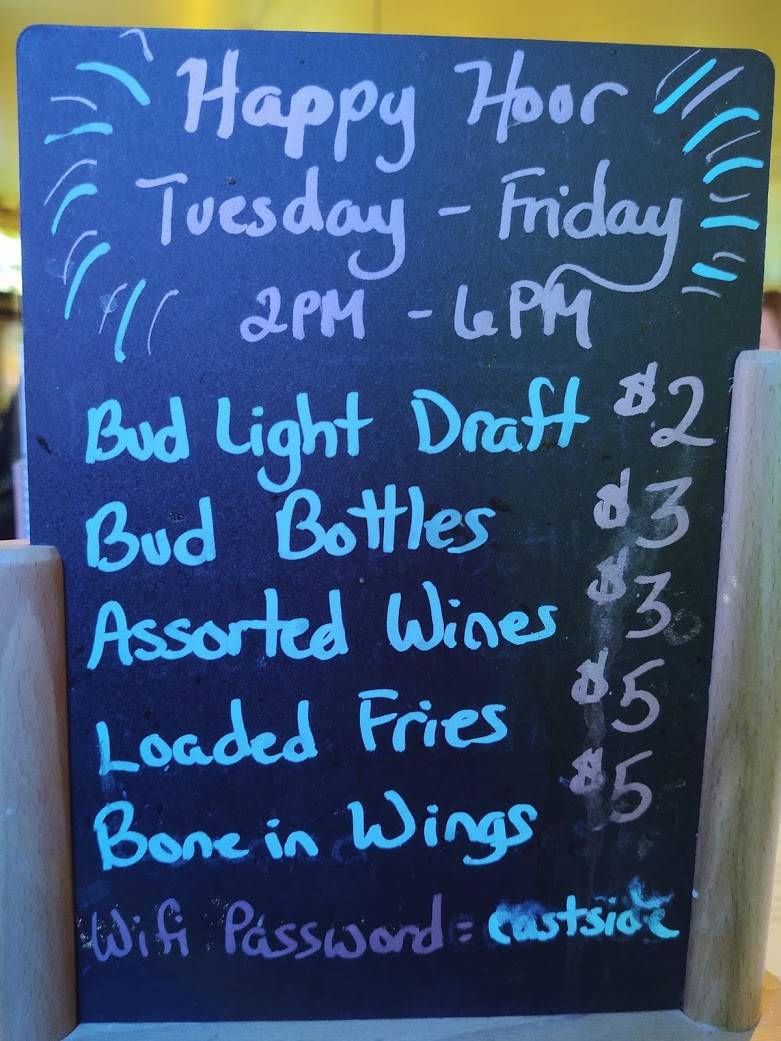 Happy Hoor
Tuesday - Friday
2PM - 6PM
Bud Light Draft $2
Bud Bottles $3
Assorted Wines $3
Loaded Fries $5
Bone in Wings $5
Wifi Password = eastside